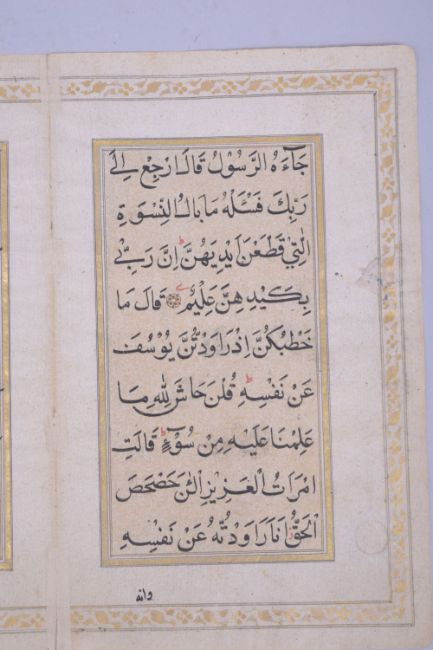 جَآءَهُ الرَّسُوْلُ قَالَ ارْجِعْ اِلٰى
رَبِّكَ فَسْئَلْهُ مَا بَالُ النِّسْوَةِ
الّٰتِيْ قَطَّعْنَ اَيْدِيَهُنَّ اِنَّ رَبِّيْ
بِكَيْدِهِنَّ عَلِيْمٌ قَالَ مَا
خَطْبُكُنَّ اِذْ رَاوَدْتُّنَّ يُوْسُفَ
عَنْ نَفْسِهٖ قُلْنَ حَاشَ لِلّٰهِ مَا
عَلِمْنَا عَلَيْهِ مِنْ سُوْٓءٍ قَالَتِ
امْرَاَتُ الْعَزِيْزِ الْـٰٔنَ حَصْحَصَ
الْحَقُّ اَنَا رَاوَدْتُّهُ عَنْ نَفْسِهٖ
وانه